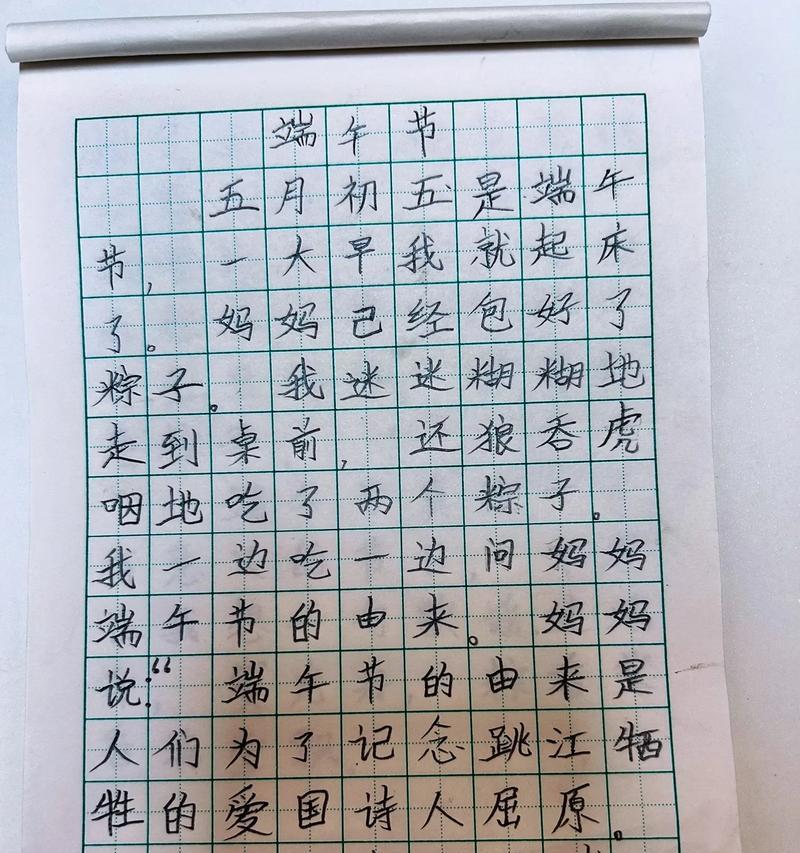 端午节
五月初五是端午
节，一大早我就起床
了。妈妈已经包好了
粽子。我迷迷糊糊地
走到桌前，还狼吞虎
咽地吃了两个粽子。
我一边吃一边问妈妈
端午节的由来。妈妈
说：“端午节的由来是
人们为了记念跳江牺
牲的爱国诗人屈原。